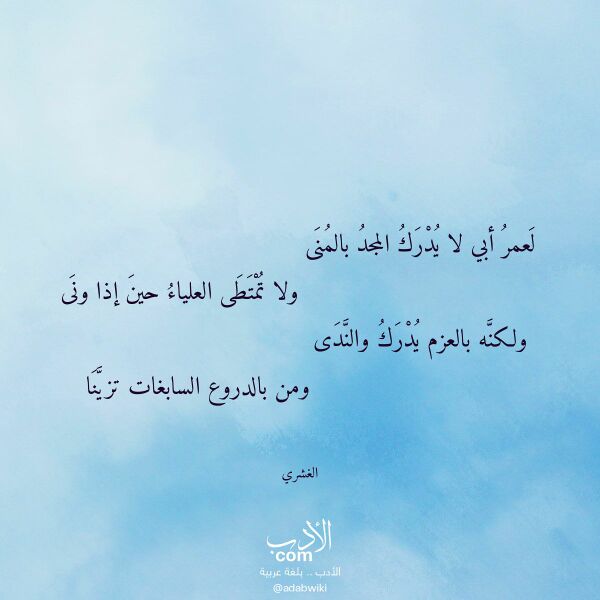 لَعمرُ أبي لا يُدْرَكُ المجدُ بالمُنَى
ولا تُمْتَطَى العلياءُ حينَ إذا ونَى
ولكنَّه بالعزم يُدْرَكُ والنَّدَى
ومن بالدروع السابغات تزيَّنَا
الغشري
الأدب
com
الأدب .. بلغة عربية
@adabwiki